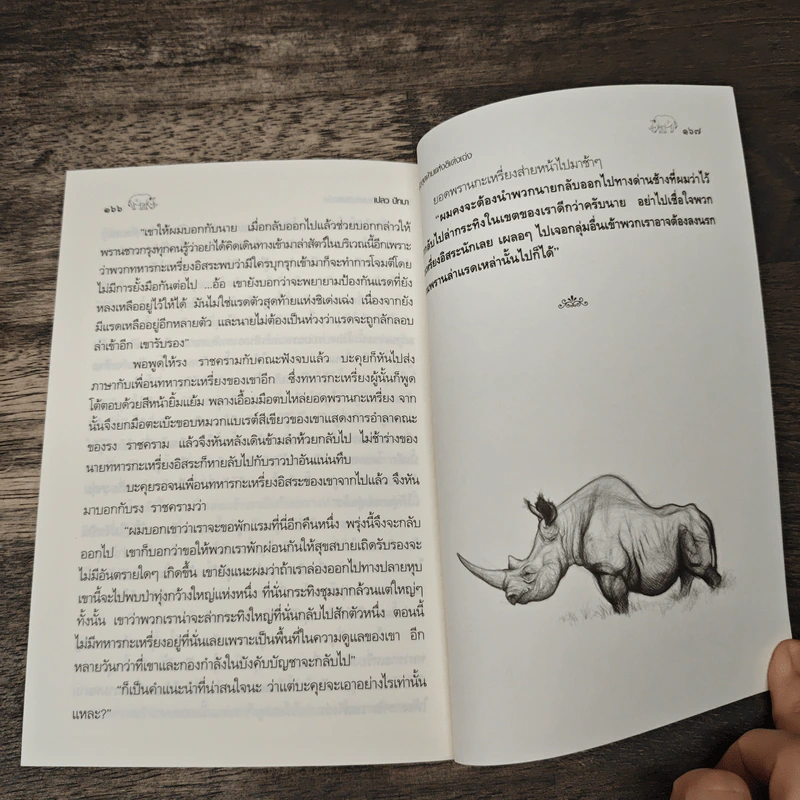 ๑๖๖
เปลว ปัทมา
"เขาให้ผมบอกกับนาย เมื่อกลับออกไปแล้วช่วยบอกกล่าวให้
พรานชาวกรุงทุกคนรู้ว่าอย่าได้คิดเดินทางเข้ามาล่าสัตว์ในบริเวณนี้อีกเพราะ
ว่าพวกทหารกะเหรี่ยงอิสระพบว่ามีใครบุกรุกเข้ามาก็จะทำการโจมตีโดย
ไม่มีการยั้งมือกันต่อไป ...อ้อ เขายังบอกว่าจะพยายามป้องกันแรดที่ยัง
หลงเหลืออยู่ไว้ให้ได้ มันไม่ใช่แรดตัวสุดท้ายแห่งชิเด่งเฉ่ง เนื่องจากยัง
มีแรดเหลืออยู่อีกหลายตัว และนายไม่ต้องเป็นห่วงว่าแรดจะถูกลักลอบ
ล่าเข้าอีก เขารับรอง"
พอพูดให้รง ราชครามกับคณะฟังจบแล้ว บะคุยก็หันไปส่ง
ภาษากับเพื่อนทหารกะเหรี่ยงของเขาอีก ซึ่งทหารกะเหรี่ยงผู้นั้นก็พูด
โต้ตอบด้วยสีหน้ายิ้มแย้ม พลางเอื้อมมือตบไหล่ยอดพรานกะเหรี่ยง จาก
นั้นจึงยกมือตะเบ๊ะขอบหมวกแบเรต์สีเขียวของเขาแสดงการอำลาคณะ
ของรง ราชคราม แล้วจึงหันหลังเดินข้ามลำห้วยกลับไป ไม่ช้าร่างของ
นายทหารกะเหรี่ยงอิสระก็หายลับไปกับราวป่าอันแน่นทึบ
บะคุยรอจนเพื่อนทหารกะเหรี่ยงอิสระของเขาจากไปแล้ว จึงหัน
มาบอกกับรง ราชครามว่า
"ผมบอกเขาว่าเราจะขอพักแรมที่นี่อีกคืนหนึ่ง พรุ่งนี้จึงจะกลับ
ออกไป เขาก็บอกว่าขอให้พวกเราพักผ่อนกันให้สุขสบายเถิดรับรองจะ
ไม่มีอันตรายใดๆ เกิดขึ้น เขายังแนะผมว่าถ้าเราล่องออกไปทางปลายหุบ
เขานี้จะไปพบป่าทุ่งกว้างใหญ่แห่งหนึ่ง ที่นั่นกระทิงชุมมากล้วนแต่ใหญ่ๆ
ทั้งนั้น เขาว่าพวกเราน่าจะล่ากระทิงใหญ่ที่นั่นกลับไปสักตัวหนึ่ง ตอนนี้
ไม่มีทหารกะเหรี่ยงอยู่ที่นั่นเลยเพราะเป็นพื้นที่ในความดูแลของเขา อีก
หลายวันกว่าที่เขาและกองกำลังในบังคับบัญชาจะกลับไป"
"ก็เป็นคำแนะนำที่น่าสนใจนะ ว่าแต่บะคุยจะเอาอย่างไรเท่านั้น
แหละ?"
๑๖๗
ยอดพรานกะเหรี่ยงส่ายหน้าไปมาช้าๆ
"ผมคงจะต้องนำพวกนายกลับออกไปทางด้านช้างที่ผมว่าไว้
กลับไปล่ากระทิงในเขตของเราดีกว่าครับนาย อย่าไปเชื่อใจพวก
กะเหรี่ยงอิสระนักเลย เผลอๆ ไปเจอกลุ่มอื่นเข้าพวกเราอาจต้องลงนรก
พรานล่าแรดเหล่านั้นไปก็ได้"